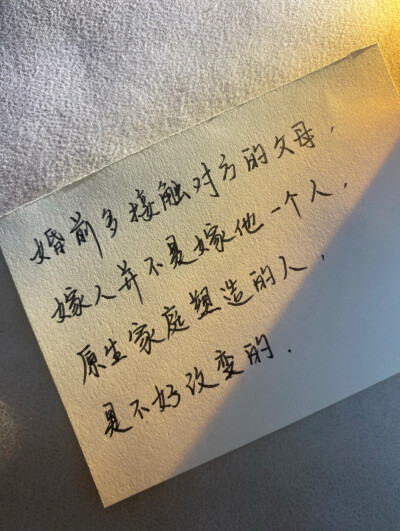 婚前多接触对方的父母，
嫁人并不是嫁他一个人，
原生家庭塑造的人，
是不好改变的.